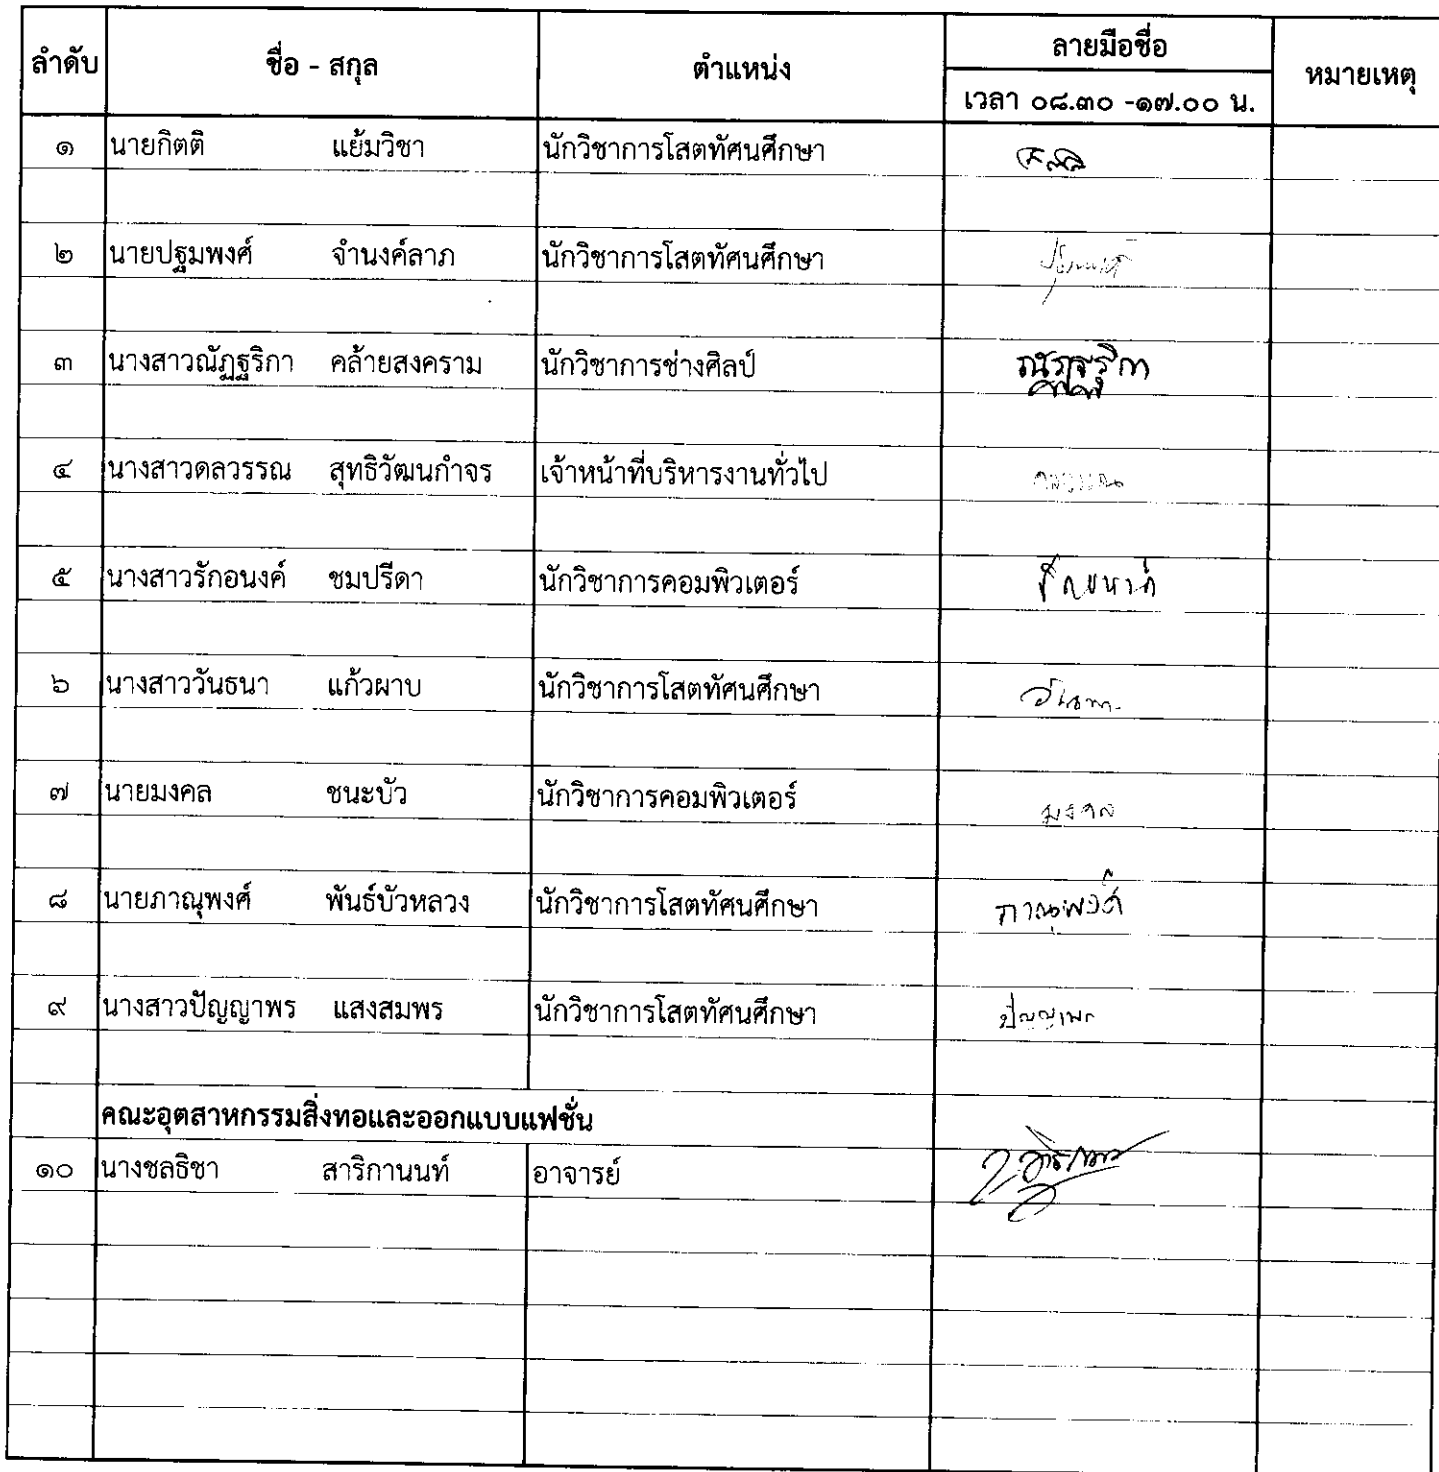 ลำดับ ชื่อ - สกุล ตำแหน่ง ลายมือชื่อ หมายเหตุ
เวลา ๐๘.๓๐ -๑๗.๐๐ น.
๑ นายกิตติ แย้มวิชา นักวิชาการโสตทัศนศึกษา
๒ นายปฐมพงศ์ จำนงค์ลาภ นักวิชาการโสตทัศนศึกษา
๓ นางสาวณัฏฐริกา คล้ายสงคราม นักวิชาการช่างศิลป์ ณัฏฐริกา
๔ นางสาวดลวรรณ สุทธิวัฒนกำจร เจ้าหน้าที่บริหารงานทั่วไป ดลวรรณ
๕ นางสาวรักอนงค์ ชมปรีดา นักวิชาการคอมพิวเตอร์
๖ นางสาววันธนา แก้วผาบ นักวิชาการโสตทัศนศึกษา
๗ นายมงคล ชนะบัว นักวิชาการคอมพิวเตอร์ มงคล
๘ นายภาณุพงศ์ พันธ์บัวหลวง นักวิชาการโสตทัศนศึกษา ภาณุพงศ์
๙ นางสาวปัญญาพร แสงสมพร นักวิชาการโสตทัศนศึกษา ปัญญาพร
คณะอุตสาหกรรมสิ่งทอและออกแบบแฟชั่น
๑๐ นางชลธิชา สาริกานนท์ อาจารย์